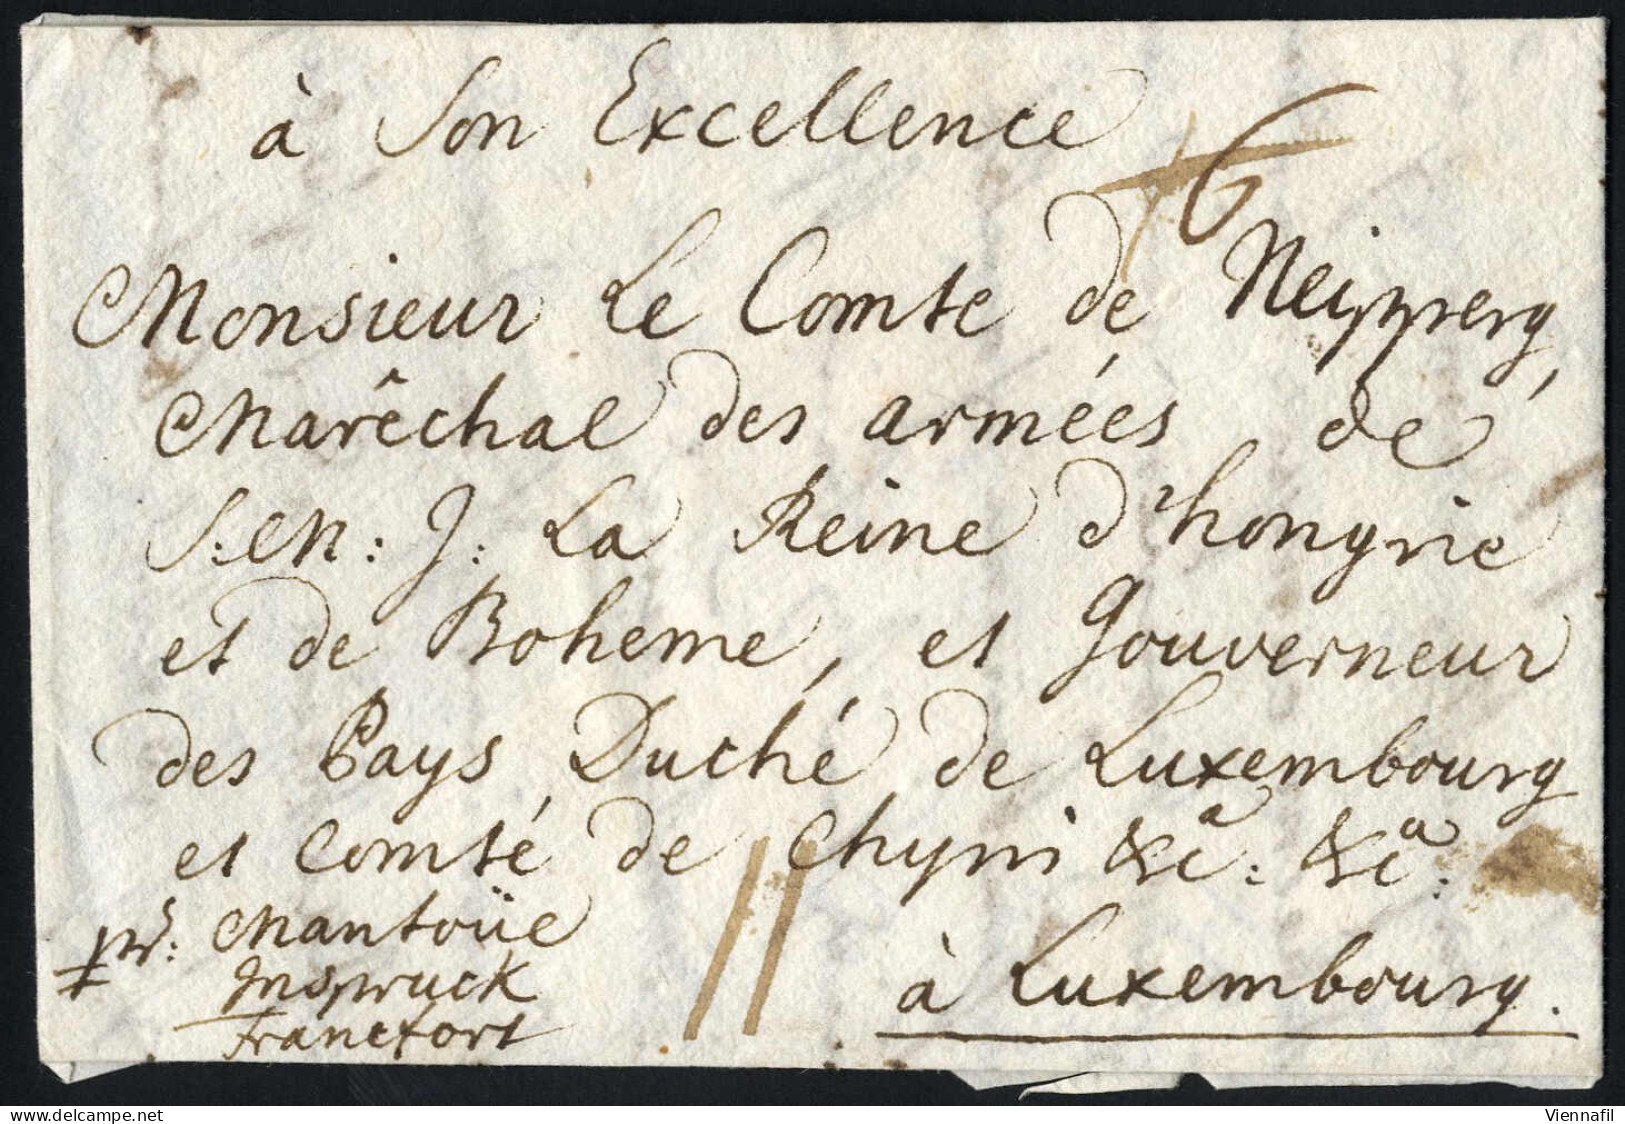 à Son Excellence
6
Monsieur Le Comte de Neipperg,
Marêchal des armées de
S: M: J: La Reine d'hongrie
et de Boheme, et Gouverneur
des Pays Duché de Luxembourg
et Comté de Chyni &c^a: &c^a:
pr: Mantoüe
Inspruck
Francfort
à Luxembourg.
Viennafil